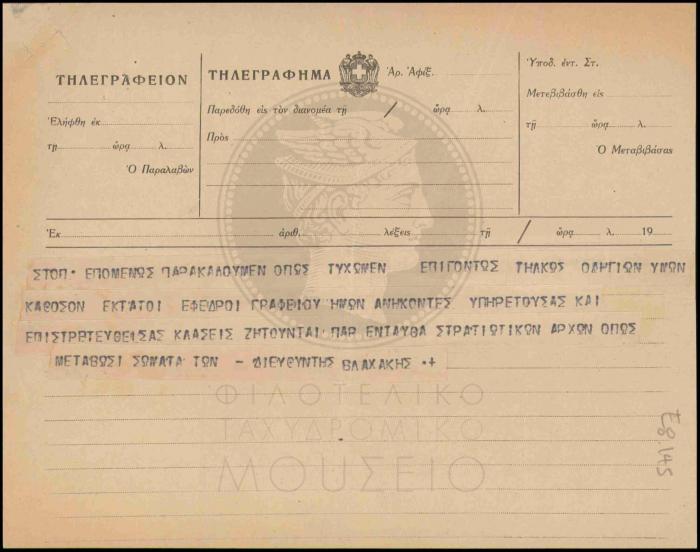 ΤΗΛΕΓΡΑΦΕΙΟΝ
Ἐλήφθη ἐκ
τῇ ὥρᾳ λ.
Ὁ Παραλαβὼν
ΤΗΛΕΓΡΑΦΗΜΑ Ἀρ. Ἀφίξ.
Παρεδόθη εἰς τὸν διανομέα τῇ / ὥρᾳ λ.
Πρὸς
Ὑποδ. ἐντ. Στ.
Μετεβιβάσθη εἰς
τῇ ὥρᾳ λ.
Ὁ Μεταβιβάσας
Ἐκ ἀριθ. λέξεις τῇ / ὥρᾳ λ. 19
ΣΤΟΠ· ΕΠΟΜΕΝΩΣ ΠΑΡΑΚΑΛΟΥΜΕΝ ΟΠΩΣ ΤΥΧΩΜΕΝ ΕΠΙΓΟΝΤΩΣ ΤΗΛΚΩΣ ΟΔΗΓΙΩΝ ΥΜΩΝ
ΚΑΘΟΣΟΝ ΕΚΤΑΤΟΙ ΕΦΕΔΡΟΙ ΓΡΑΦΕΙΟΥ ΗΜΩΝ ΑΝΗΚΟΝΤΕΣ ΥΠΗΡΕΤΟΥΣΑΣ ΚΑΙ
ΕΠΙΣΤΡΕΤΕΥΘΕΙΣΑΣ ΚΛΑΣΕΙΣ ΖΗΤΟΥΝΤΑΙ ΠΑΡ ΕΝΤΑΥΘΑ ΣΤΡΑΤΙΩΤΙΚΩΝ ΑΡΧΩΝ ΟΠΩΣ
ΜΕΤΑΒΩΣΙ ΣΩΜΑΤΑ ΤΩΝ – ΔΙΕΥΘΥΝΤΗΣ ΒΛΑΧΑΚΗΣ ·+
ΦΙΛΟΤΕΛΙΚΟ
ΤΑΧΥΔΡΟΜΙΚΟ
ΜΟΥΣΕΙΟ
Εφ. 145